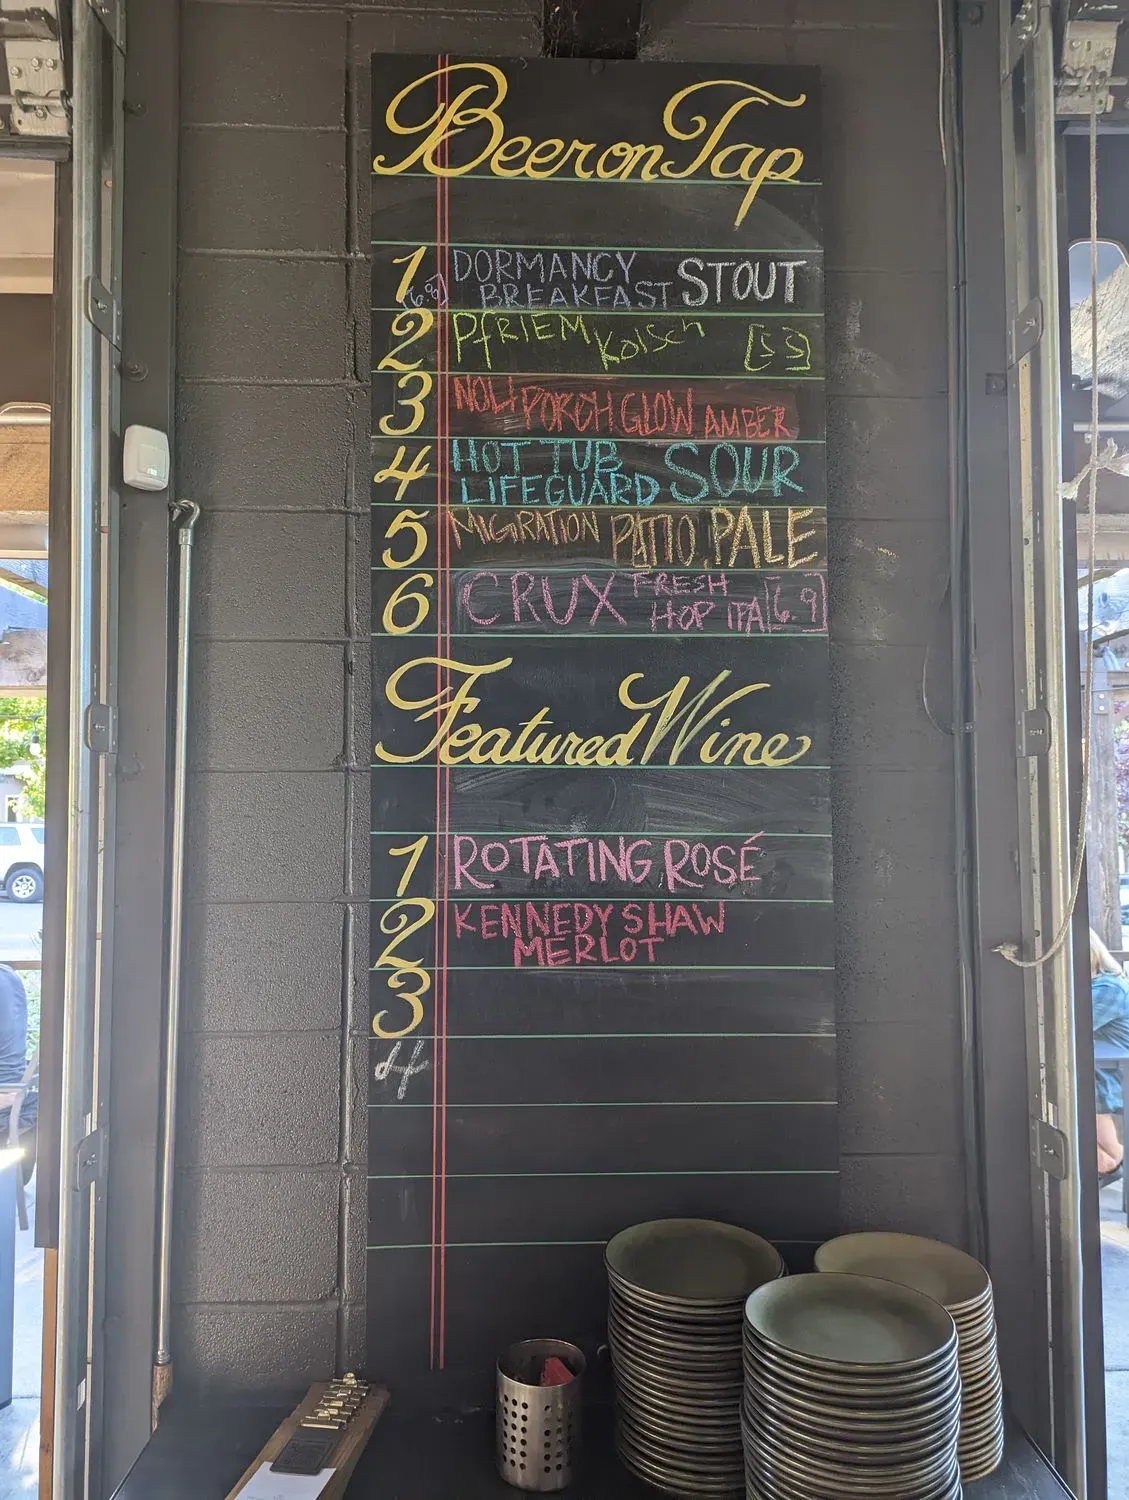 Beer on Tap
1 DORMANCY BREAKFAST STOUT
2 PFRIEM Kolsch [5 5]
3 NOLI PORCH GLOW AMBER
4 HOT TUB LIFEGUARD SOUR
5 MIGRATION PATIO PALE
6 CRUX FRESH HOP IPA [6.9]
Featured Wine
1 ROTATING ROSÉ
2 KENNEDY SHAW MERLOT
3
4